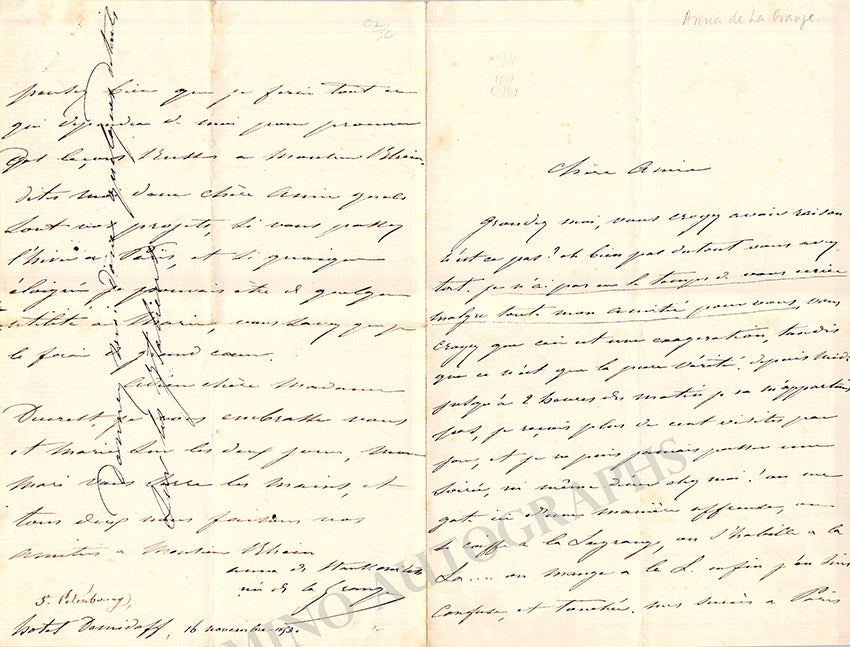 Anna de La Grange.
Chère Amie
Grondez moi, vous croyez avoir raison
n'est ce pas? eh bien pas dutout vous avez
tort, je n'ai pas eu le temps de vous écrire
malgré toute mon amitié pour vous, vous
croyez que ceci est une exageration, tandis
que ce n'est que la pure vérité. depuis midi
jusqu'à 2 heures du matin je ne m'appartiens
pas, je reçois plus de cent visites par
jour, et je ne puis jamais passer une
soirée, ni même diner chez moi! on me
gate ici d'une manière affreuse, on
se coiffe à la Lagrange, on s'habille à la
La.... on mange a la L. enfin j'en suis
confuse, et touchée. mes succès a Paris
02
JC
pensez bien que je ferai tout ce
qui dependra de moi pour procurer
des leçons Russes a Monsieur
dites moi donc chère Amie quels
sont vos projets, si vous passez
l'hiver a Paris, et si quoique
éloignée je pouvais être de quelque
utilité a Marie, vous savez que je
le ferai de grand cœur.
chère Madame
je vous embrasse vous
et Marie sur les deux joues, mon
Mari vous serre les mains, et
tous deux nous faisons nos
amitiés a Monsieur
Anna de
née de la Grange
St Pétersbourg,
hotel Demidoff, 16 novembre
Donnez moi donc quelques détails
sur les
MINO AUTOGRAPHS